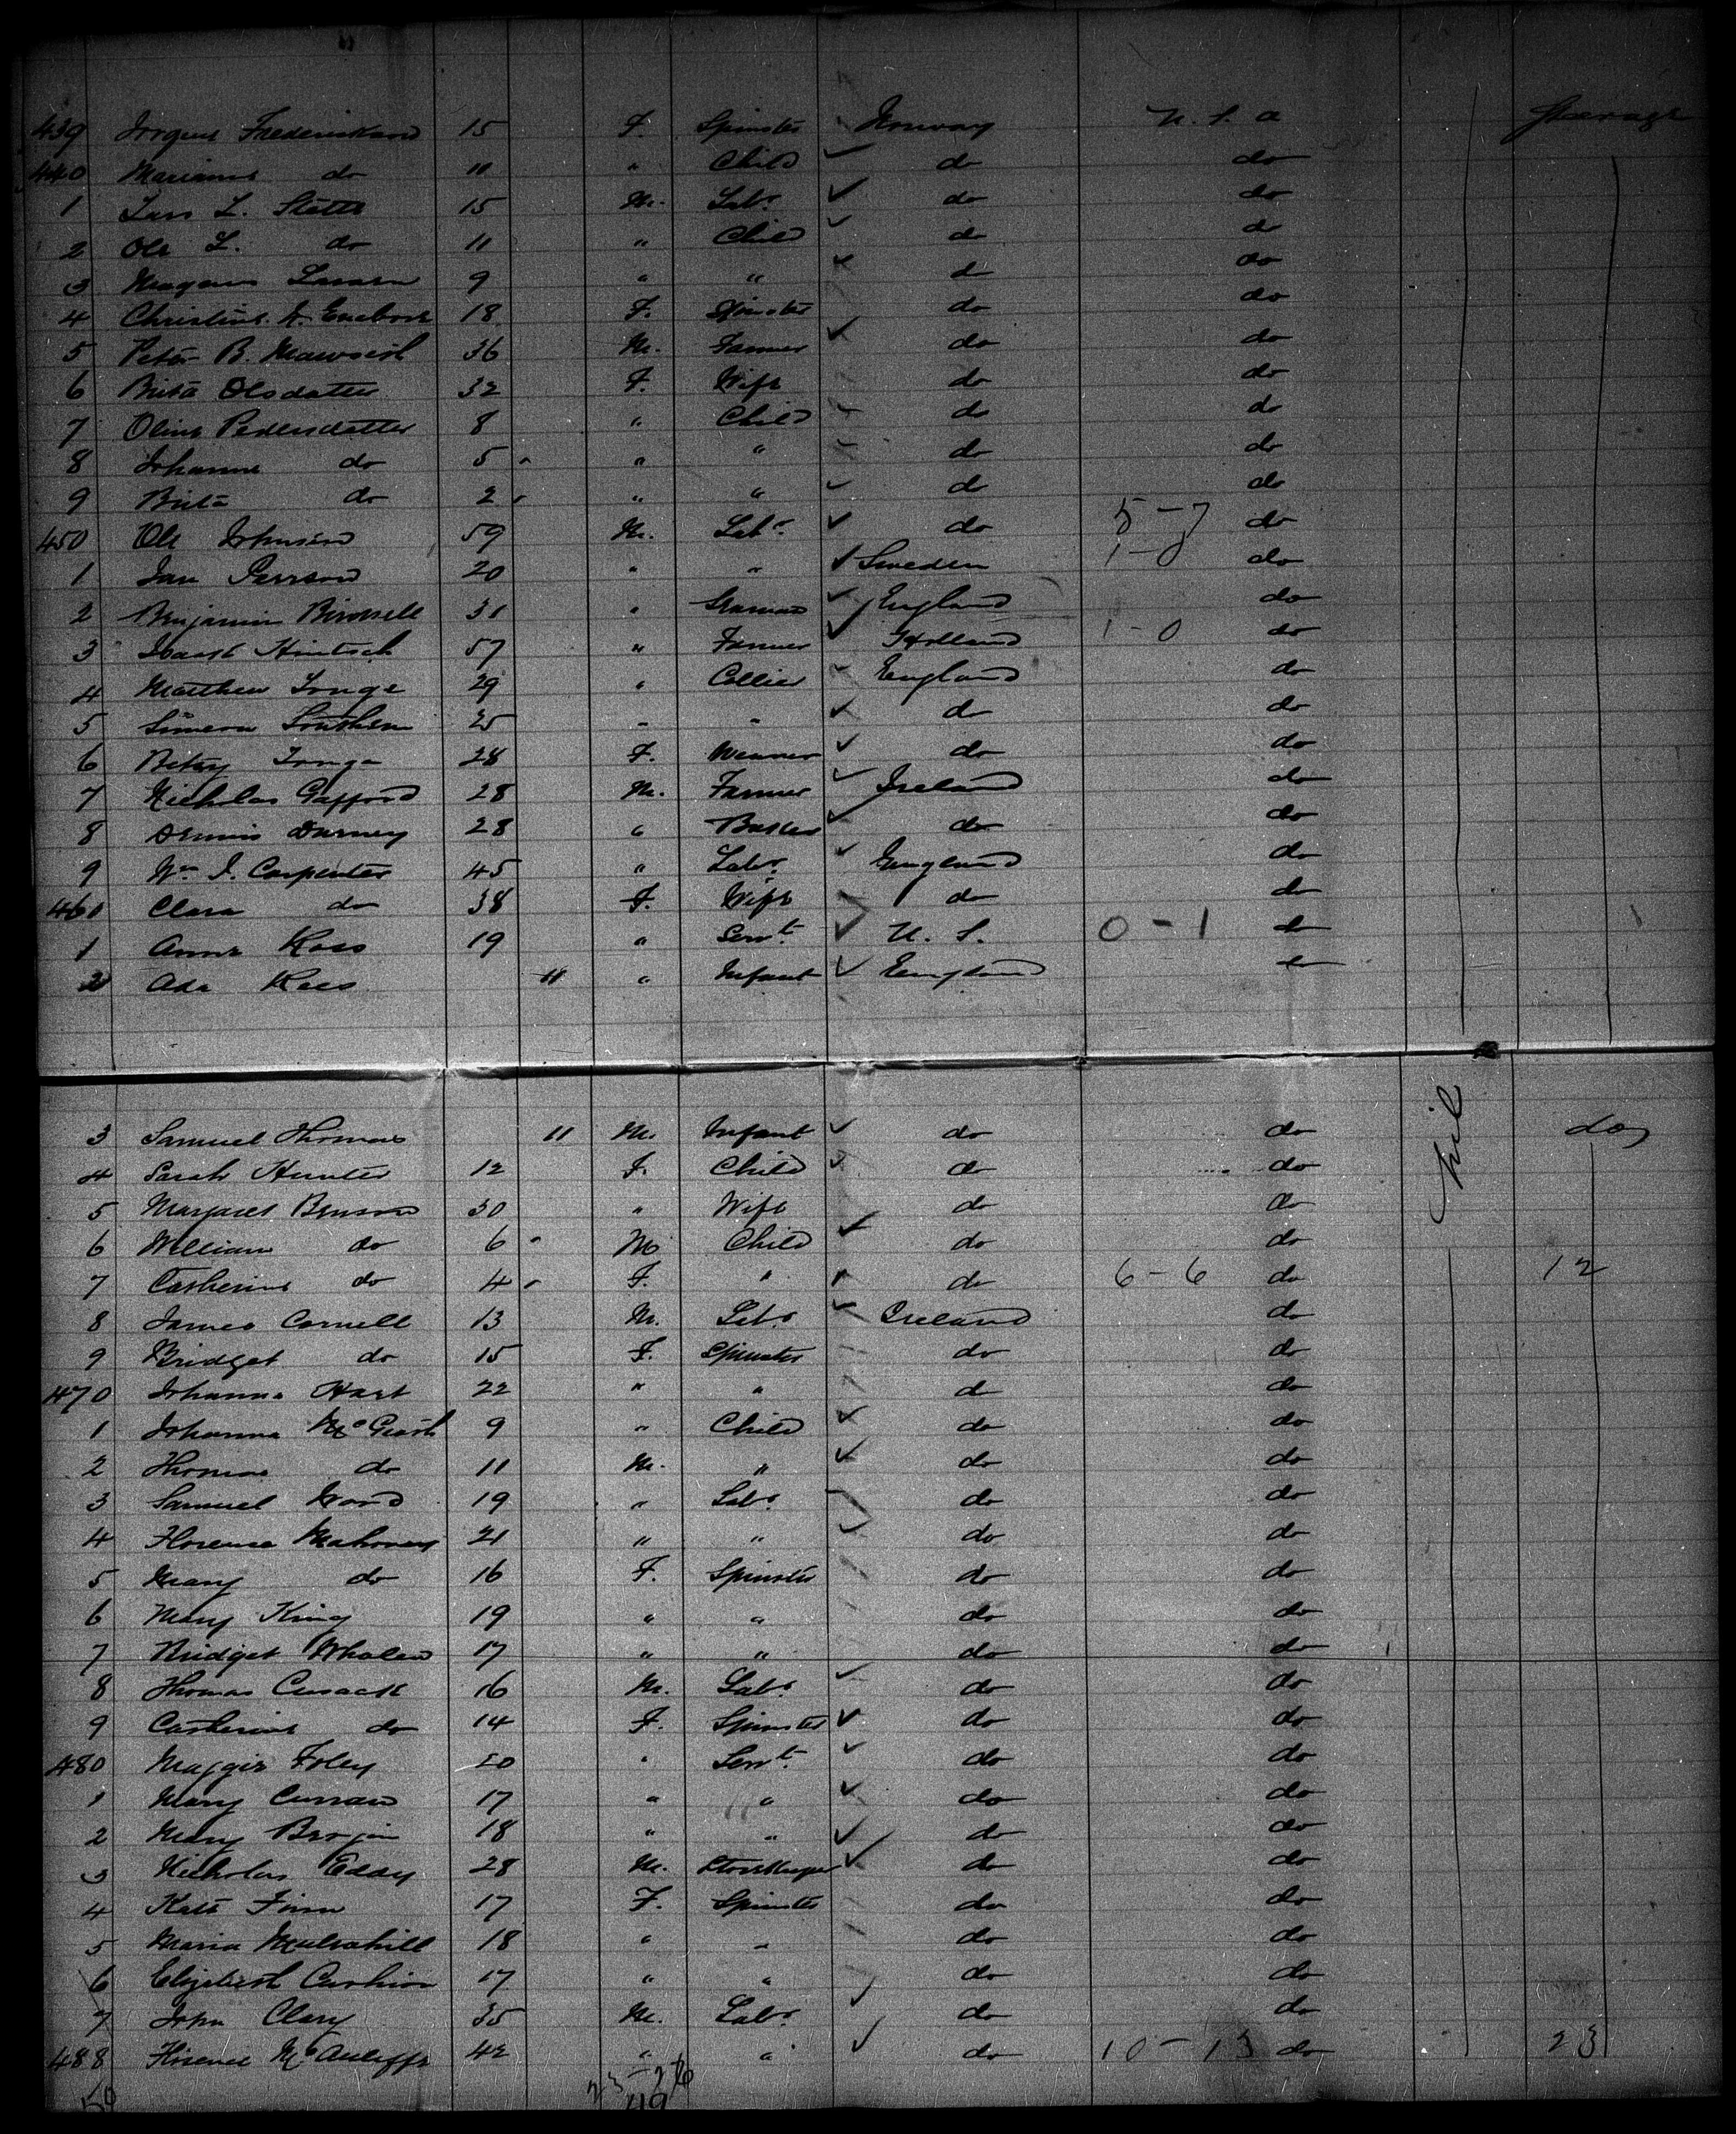 439 Frederiksen 15 F. Spinster Norway U. S. A Steerage
440 Marianne do 11 " Child do do
1 Lars L. 15 M. Labr. do do
2 Ole L. do 11 " Child do do
3 Larsen 9 " " do do
4 Christine 18 F. Spinster do do
5 Peter B. 36 M. Farmer do do
6 Brita Olsdatter 32 F. Wife do do
7 Oline Pedersdatter 8 " Child do do
8 Johanne do 5 " " do do
9 Brita do 2 " " do do
450 Ole Johnsen 59 M. Labr. do 5-7 do
1 Jan Persson 20 " " Sweden 1-0 do
2 Benjamin 31 " Seaman England do
3 Isaak 57 " Farmer Holland 1-0 do
4 Matthew Tonge 29 " Collier England do
5 Simeon Southern 25 " " do do
6 Betsy Tonge 28 F. Weaver do do
7 Nicholas Gafford 28 M. Farmer Ireland do
8 Dennis Durney 28 " do do
9 Wm. J. Carpenter 45 " Labr. England do
460 Clara do 38 F. Wife do do
1 19 " Servt. U. S. 0-1 do
2 Ada 11 " Infant England do
3 Samuel Thomas 11 M. Infant do do nil do
4 Sarah Hunter 12 F. Child do do
5 Margaret Benson 30 " Wife do do
6 William do 6 M Child do do
7 Catherine do 4 F. " do 6-6 do 12
8 James Cornell 13 M. Labr. Ireland do
9 Bridget do 15 F. Spinster do do
470 Johanna Hart 22 " " do do
1 Johanna McGrath 9 " Child do do
2 Thomas do 11 M. " do do
3 Samuel Ward 19 " Labr. do do
4 Florence Mahoney 21 " " do do
5 Mary do 16 F. Spinster do do
6 Mary King 19 " " do do
7 Bridget Whalen 17 " " do do
8 Thomas Cusack 16 M. Labr. do do
9 Catherine do 14 F. Spinster do do
480 Maggie Foley 20 " Servt. do do
1 Mary Curran 17 " " do do
2 Mary Brogan 18 " " do do
3 Nicholas Eddy 28 M. Storekeeper do do
4 Kate Finn 17 F. Spinster do do
5 Maria Mulcahill 18 " " do do
6 Elizabeth Cushion 17 " " do do
7 John Clary 35 M. Labr. do do
488 Florence McAuliffe 42 " " do 10-13 do 23
50 23-26
49